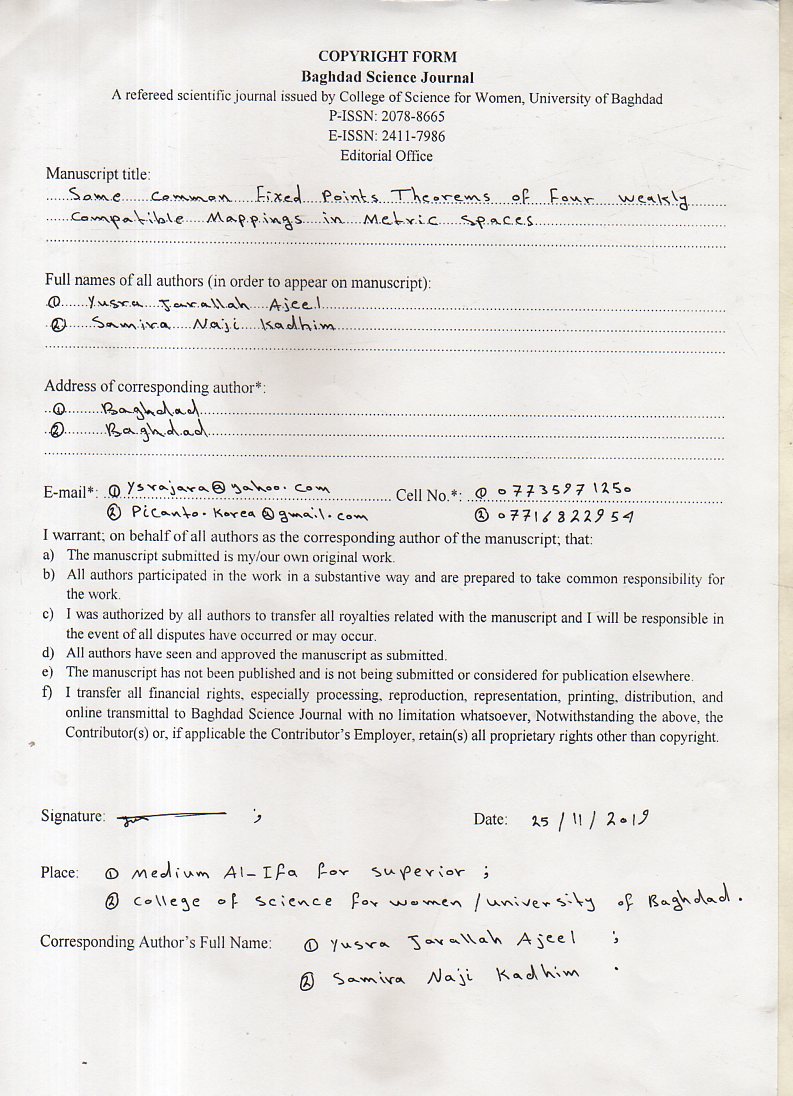 COPYRIGHT FORM
Baghdad Science Journal
A refereed scientific journal issued by College of Science for Women, University of Baghdad
P-ISSN: 2078-8665
E-ISSN: 2411-7986
Editorial Office
Manuscript title:
Some Common Fixed Points Theorems of Four Weakly
Compatible Mappings in Metric Spaces
Full names of all authors (in order to appear on manuscript):
① Yusra Jarallah Ajeel
② Samira Naji Kadhim
Address of corresponding author*:
① Baghdad
② Baghdad
E-mail*: ① Ysrajara@yahoo.com Cell No.*: ① 07735971250
② Picanto.Korea@gmail.com ② 07716822954
I warrant; on behalf of all authors as the corresponding author of the manuscript; that:
a) The manuscript submitted is my/our own original work.
b) All authors participated in the work in a substantive way and are prepared to take common responsibility for
the work.
c) I was authorized by all authors to transfer all royalties related with the manuscript and I will be responsible in
the event of all disputes have occurred or may occur.
d) All authors have seen and approved the manuscript as submitted.
e) The manuscript has not been published and is not being submitted or considered for publication elsewhere.
f) I transfer all financial rights, especially processing, reproduction, representation, printing, distribution, and
online transmittal to Baghdad Science Journal with no limitation whatsoever, Notwithstanding the above, the
Contributor(s) or, if applicable the Contributor's Employer, retain(s) all proprietary rights other than copyright.
Signature: ; Date: 25/11/2019
Place: ① Medium Al-Ifa for superior ;
② college of science for women / university of Baghdad.
Corresponding Author's Full Name: ① Yusra Jarallah Ajeel ;
② Samira Naji Kadhim .